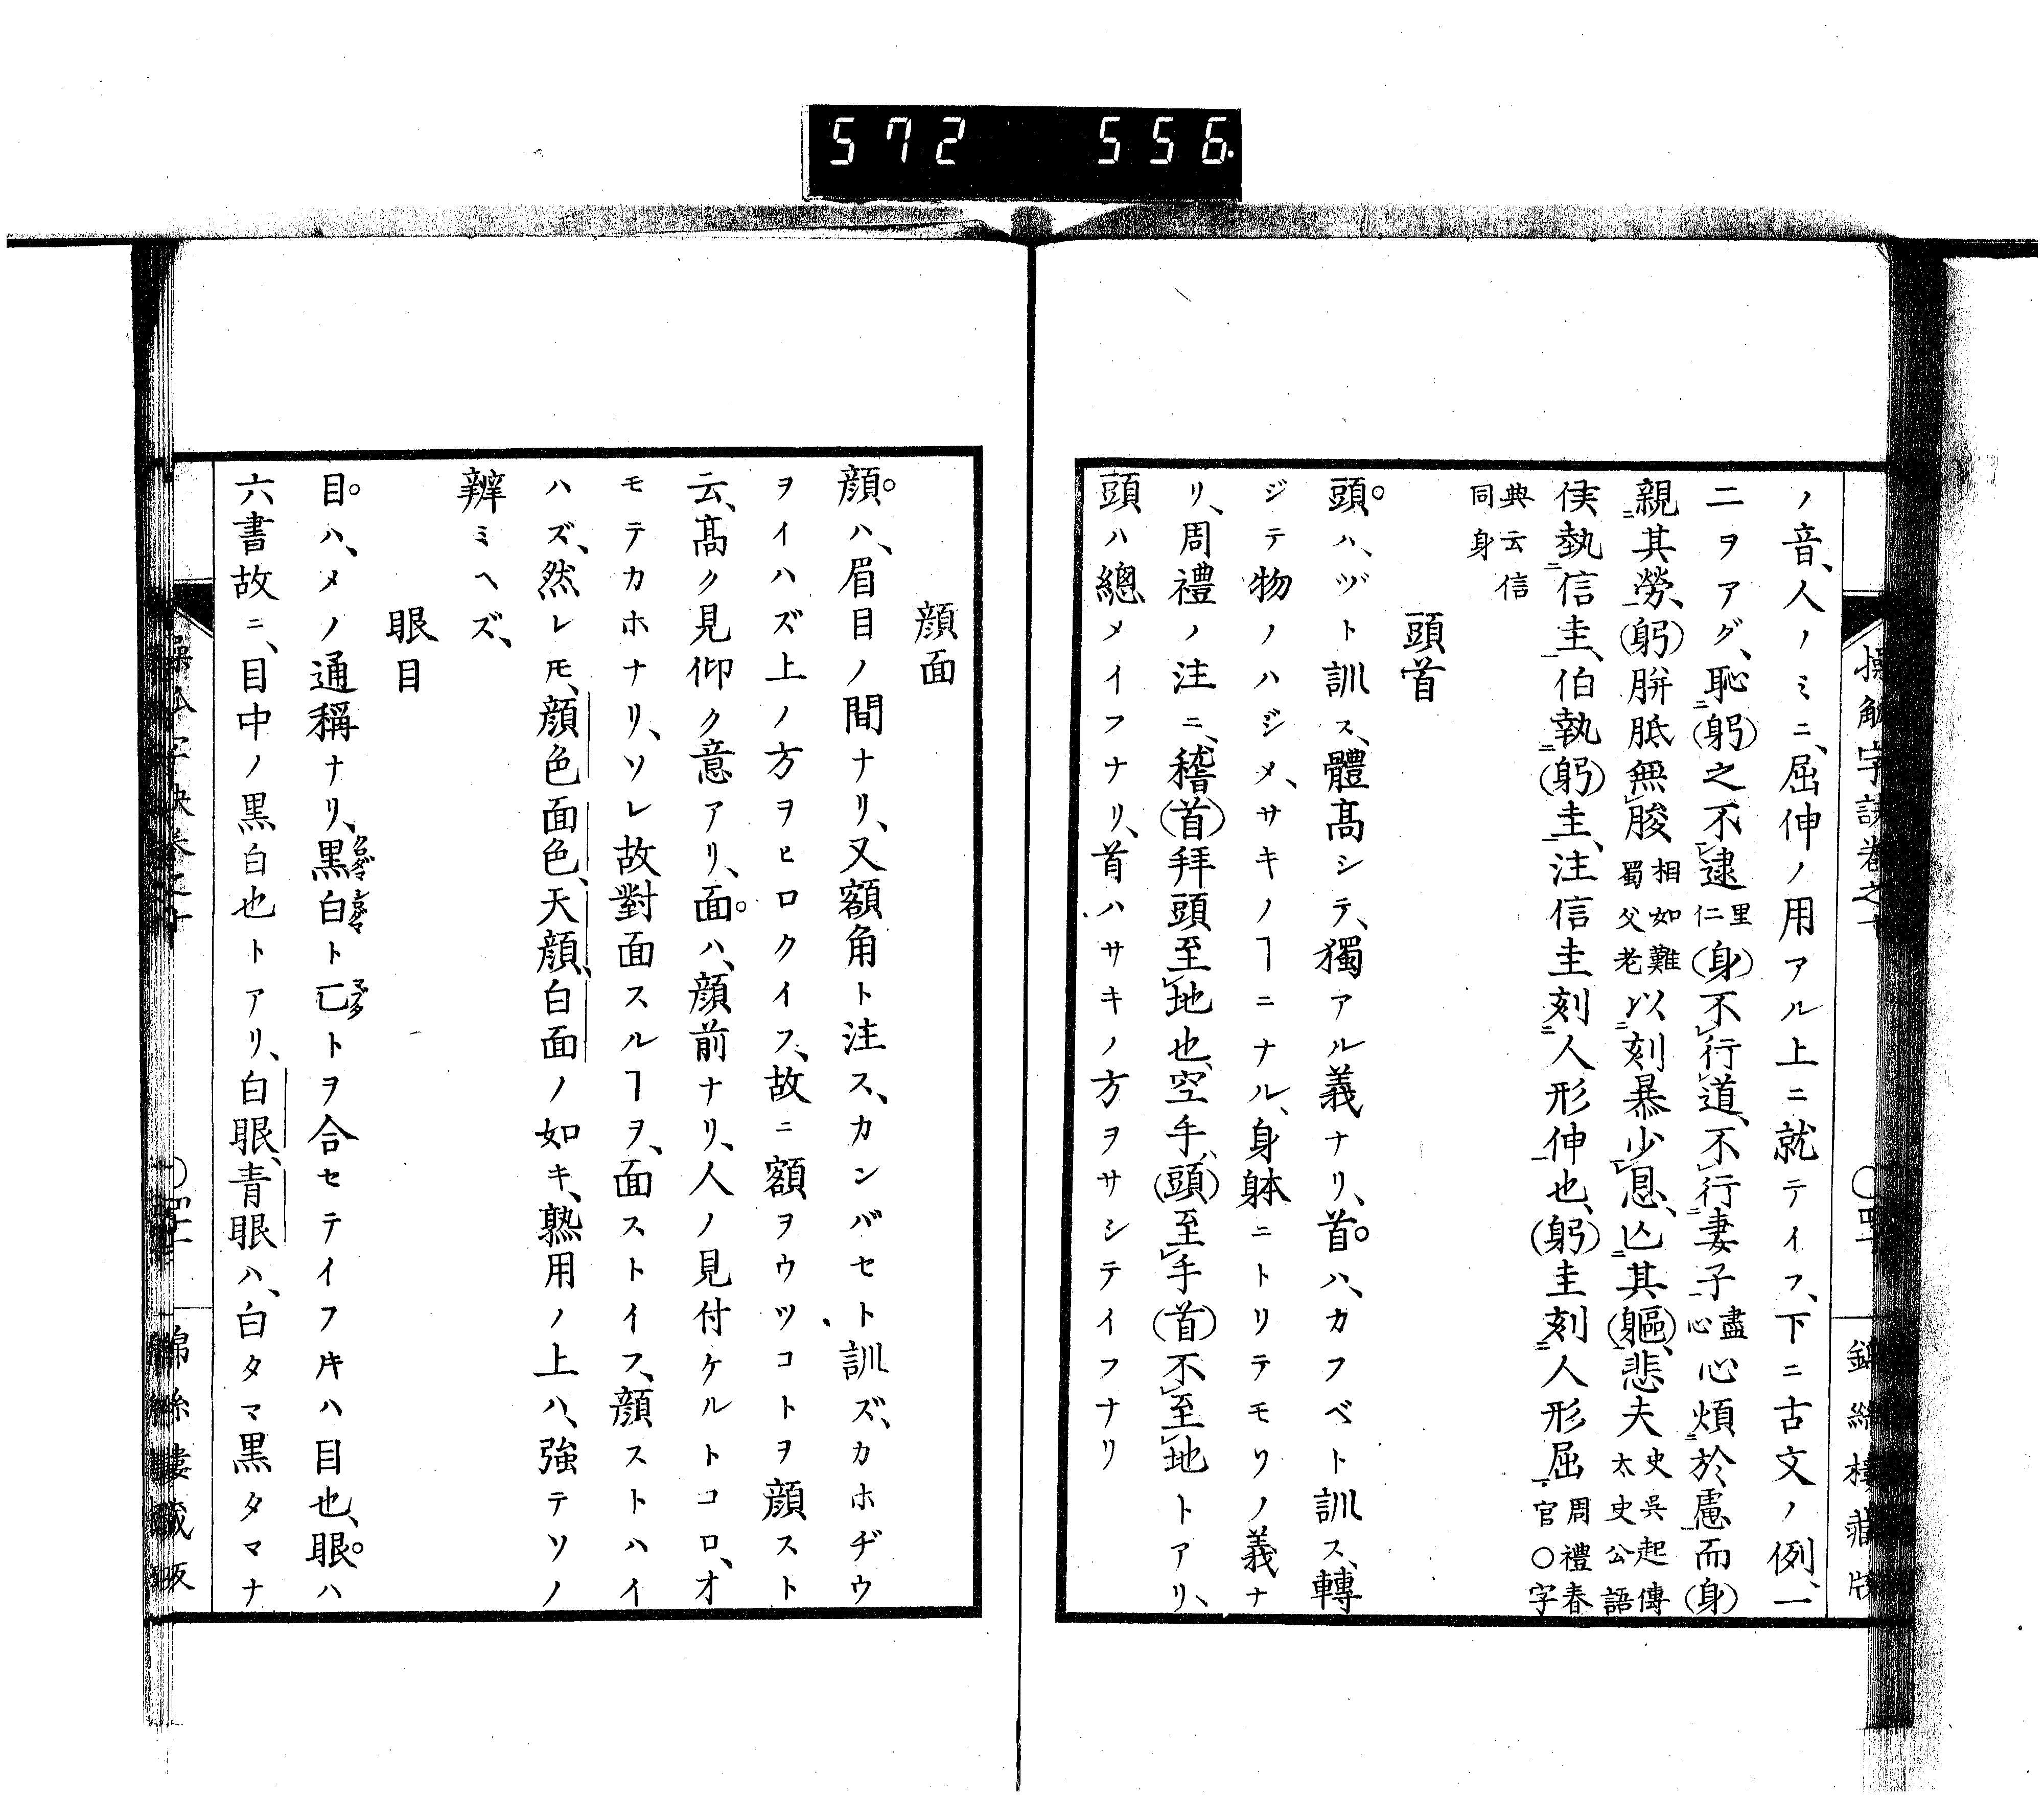 572 556
ノ音、人ノミニ、屈伸ノ用アル上ニ就テイフ、下ニ古文ノ例、一
二ヲアグ、恥(躬)之不逮里仁(身)不行道、不行妻子盡心心煩於慮而(身)
親其勞、(躬)胼胝無胈相如難蜀父老以刻暴少息、亾其(軀)、悲夫史吳起傳太史公語
侯執信圭、伯執(躬)圭、注信圭刻人形伸也、(躬)圭刻人形屈周禮春官〇字
典云信同身
頭首
頭。ハ、ヅト訓ス、體髙シテ、獨アル義ナリ、首。ハ、カフベト訓ス、轉
ジテ物ノハジメ、サキノヿニナル、身躰ニトリテモワノ義ナ
リ、周禮ノ注ニ、稽(首)拜頭至地也、空手、(頭)至手(首)不至地トアリ、
頭ハ總メイフナリ、首ハサキノ方ヲサシテイフナリ
顔面
顔。ハ、眉目ノ間ナリ、又額角ト注ス、カンバセト訓ズ、カホヂウ
ヲイハズ上ノ方ヲヒロクイフ、故ニ額ヲウツコトヲ顔スト
云、髙ク見仰ク意アリ、面。ハ、顔前ナリ、人ノ見付ケルトコロ、オ
モテカホナリ、ソレ故對面スルヿヲ、面ストイフ、顔ストハイ
ハズ、然レ𪜈、顔色面色、天顔、白面ノ如キ、熟用ノ上ハ、強テソノ
辨ミヘズ、
眼目
目。ハ、メノ通稱ナリ、黒白ト匸トヲ合セテイフ𪜈ハ目也、眼。ハ
六書故ニ、目中ノ黒白也トアリ、白眼、青眼ハ、白タマ黒タマナ